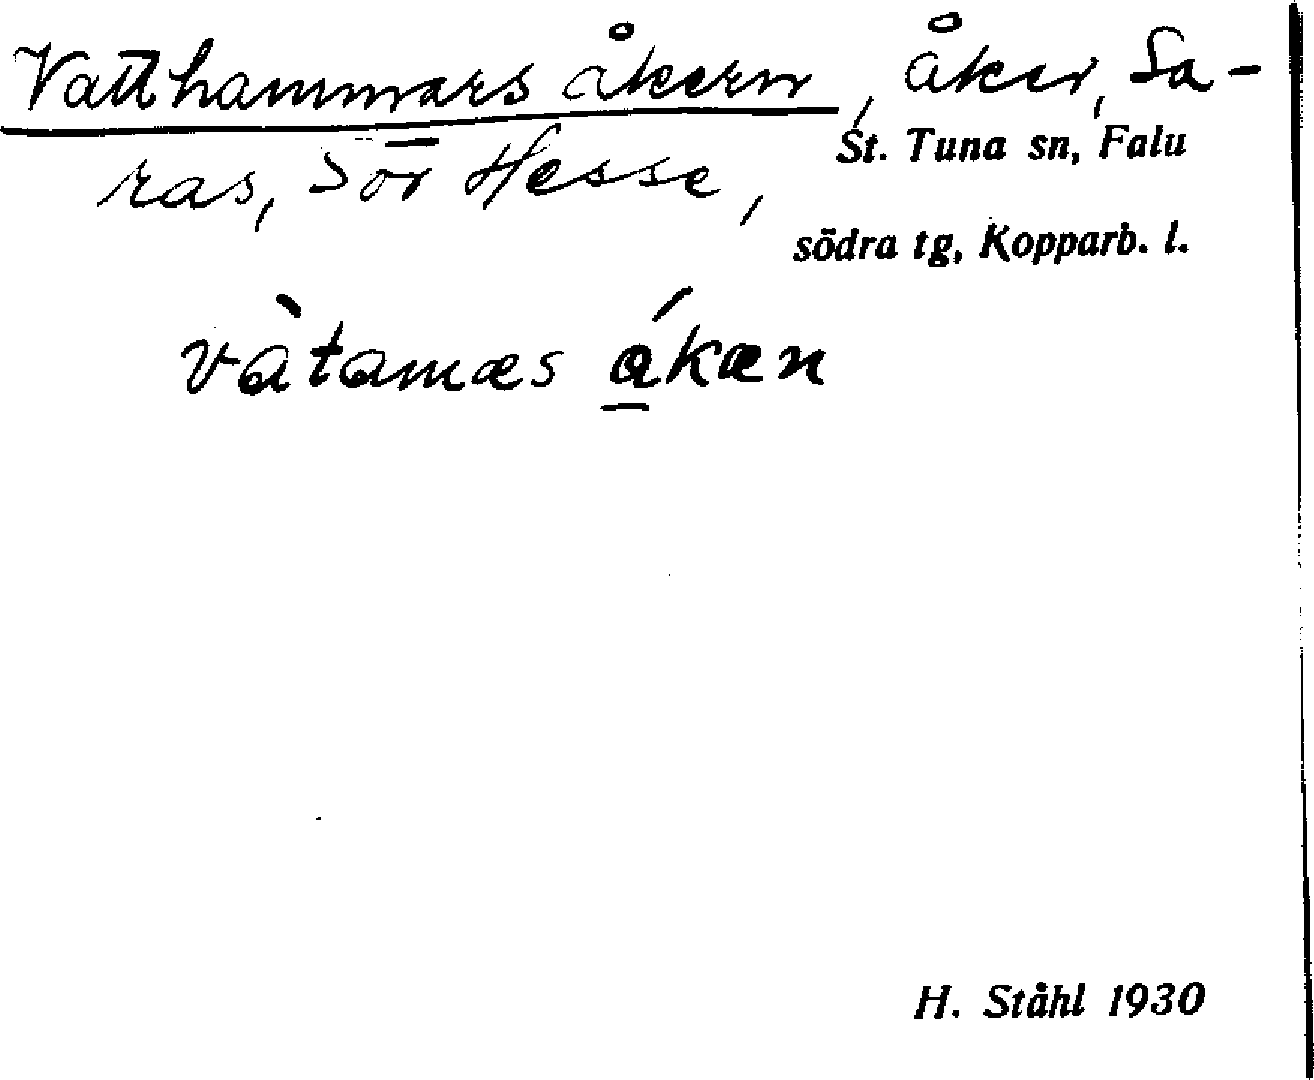 Vatthammars åkern, åker, Sa-
ras, Sör Hesse,
St. Tuna sn, Falu
södra tg, Kopparb. l.
vàtamæs á̲kæn
H. Ståhl 1930